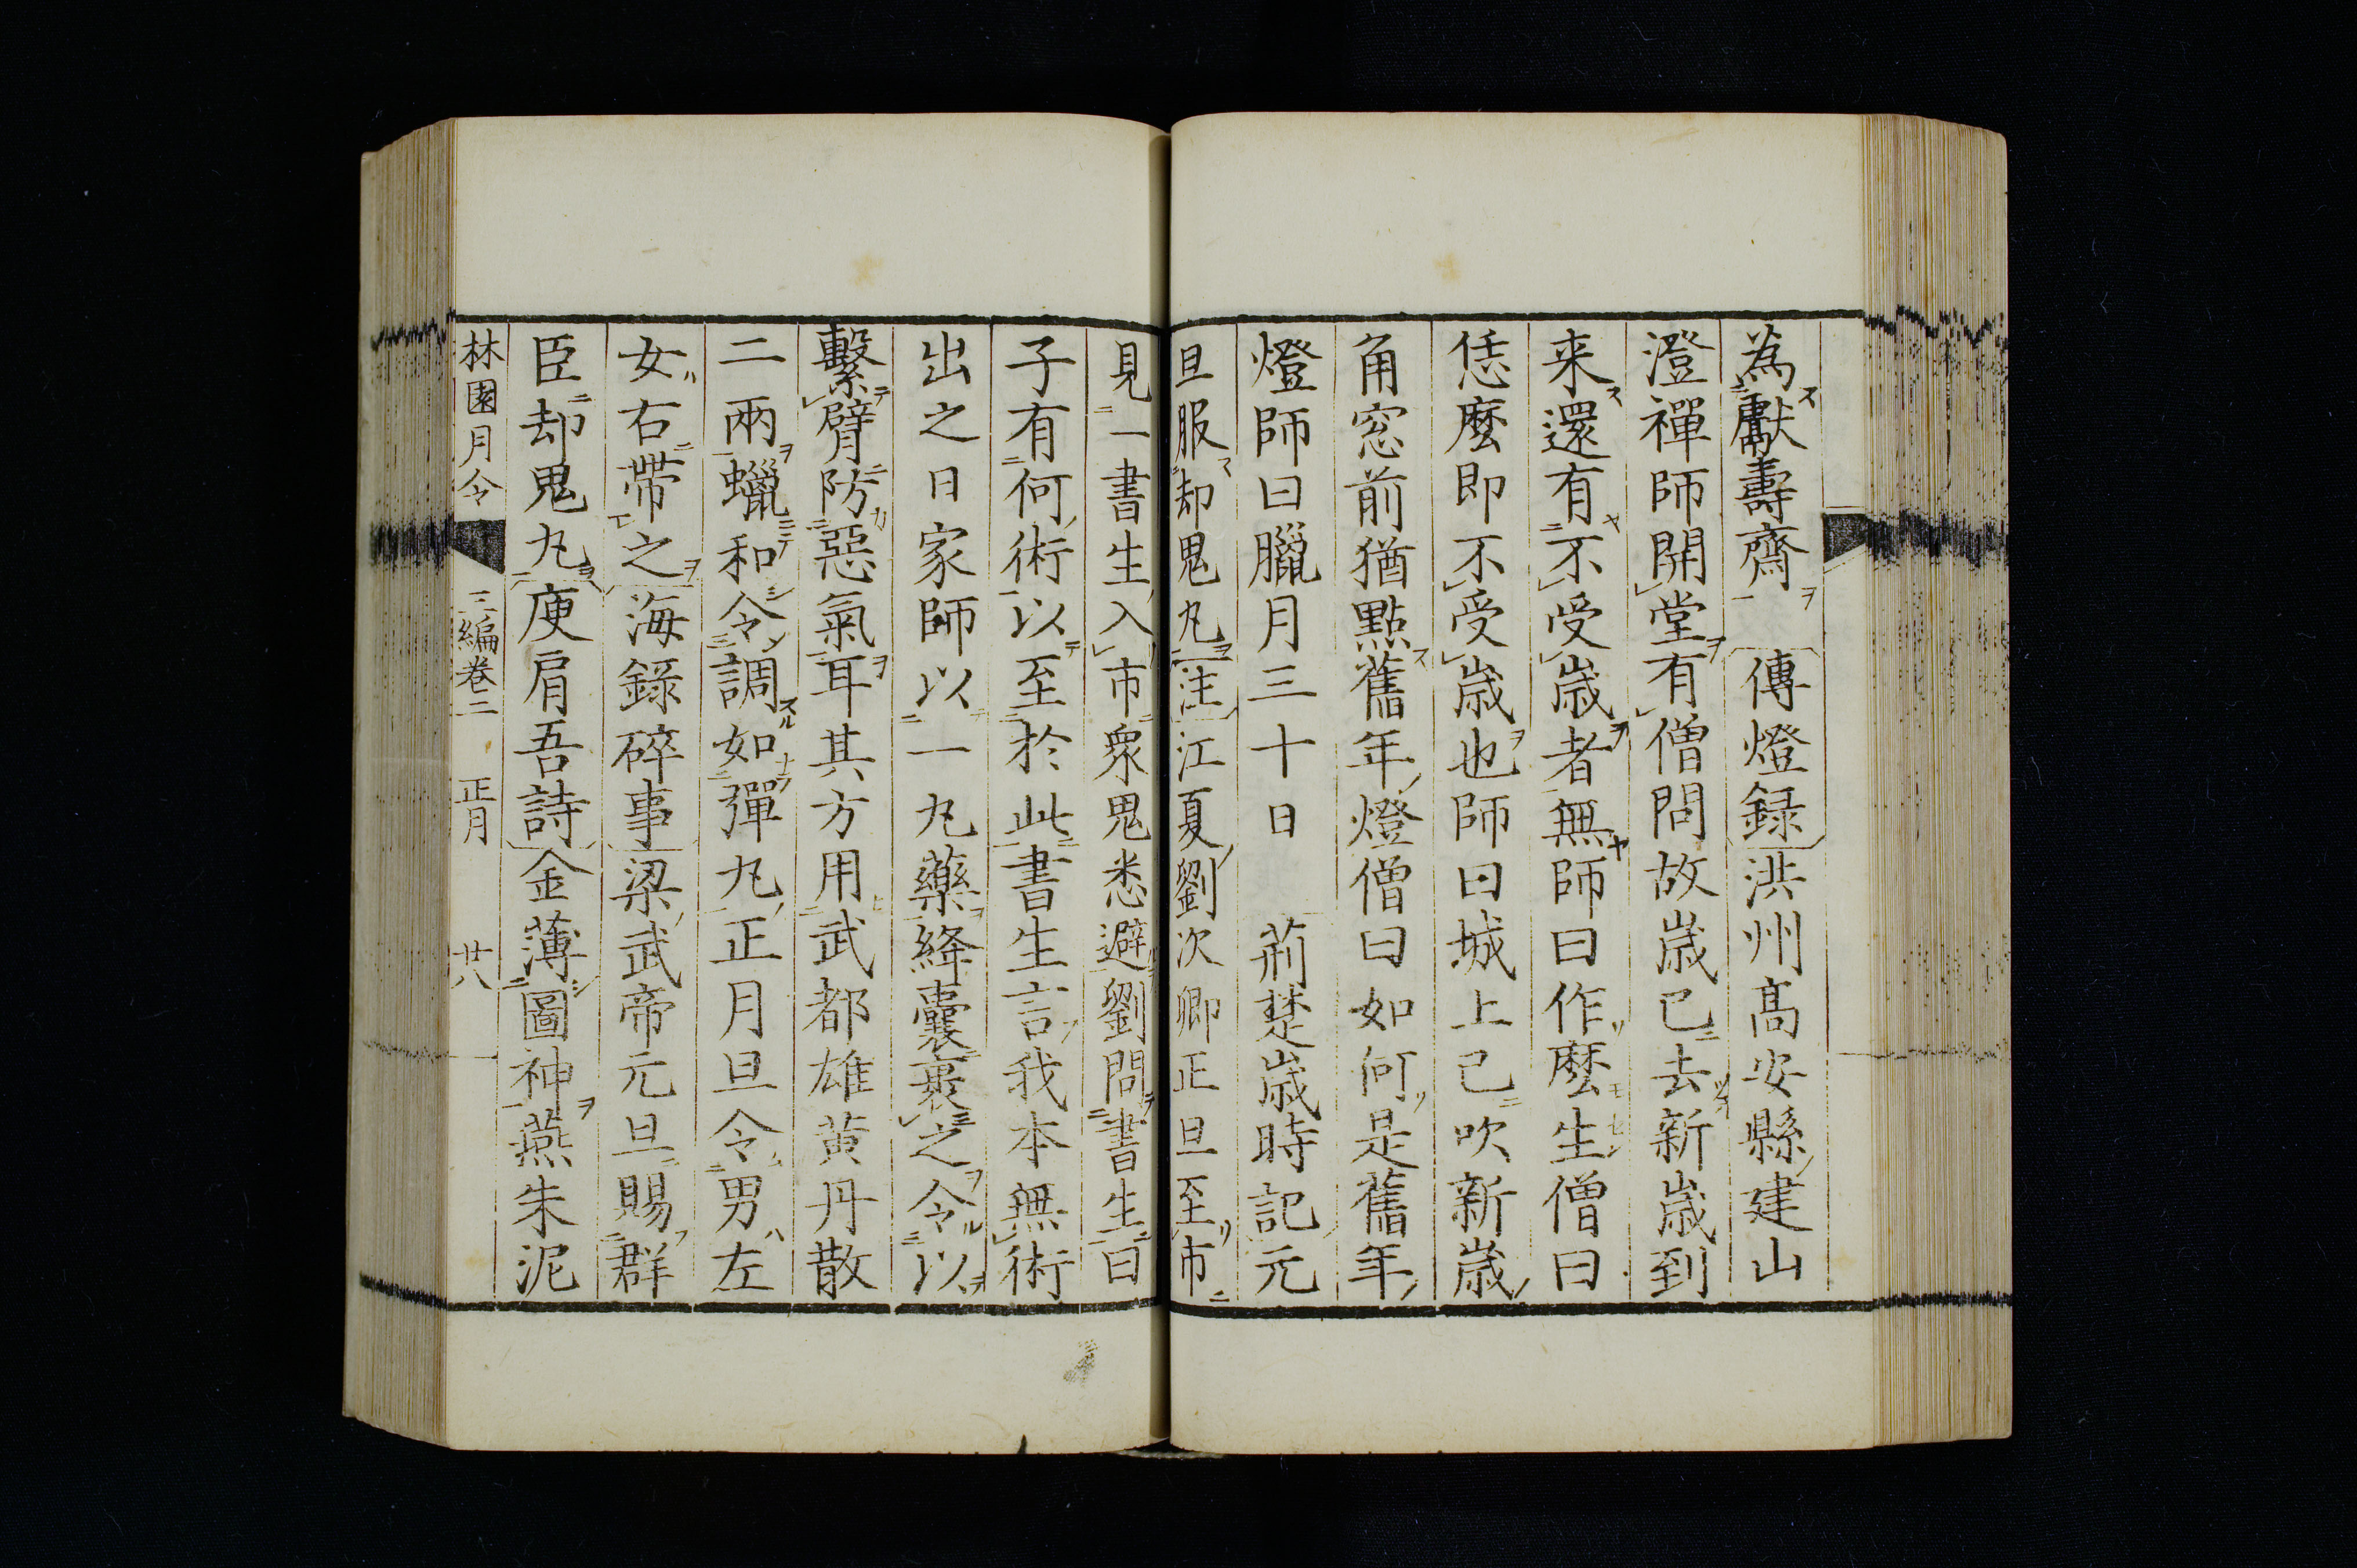 為獻壽齋傳燈録洪州髙安縣建山
澄禪師開堂有僧問故歳已去新歳到
来還有不受歳者無師曰作麼生僧曰
恁麼即不受歳也師曰城上已吹新歳
角窓前猶點舊年燈僧曰如何是舊年
燈師曰臘月三十日　荊楚歳時記元
旦服却鬼丸注江夏劉次卿正旦至市
見一書生入市衆鬼悉避劉問書生曰
子有何術以至於此書生言我本無術
出之日家師以一丸藥絳囊裹之令以
繫臂防惡氣耳其方用武都雄黄丹散
二兩蠟和令調如彈丸正月旦令男左
女右帶之海錄碎事梁武帝元旦賜群
臣却鬼丸庾肩吾詩金薄圖神燕朱泥
林園月令　三編卷二　正月　廿八